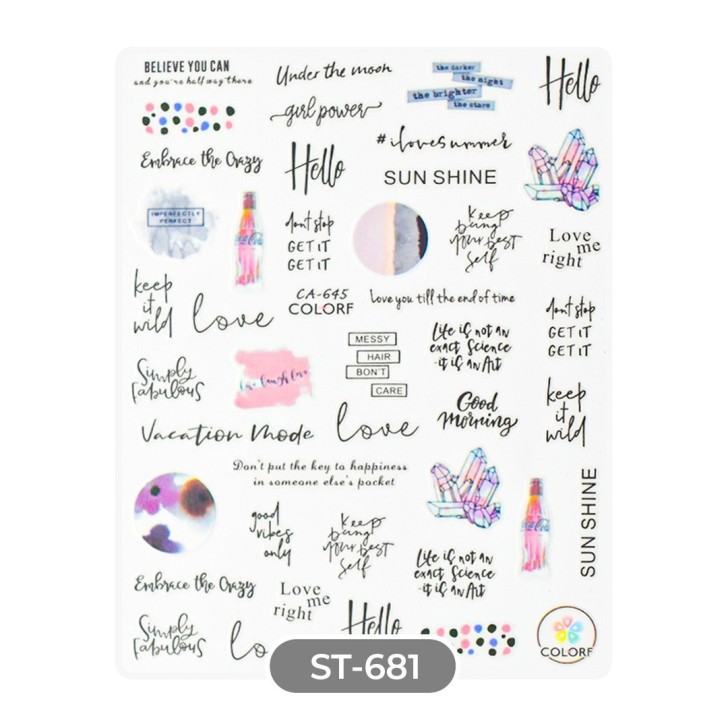 BELIEVE YOU CAN
and you're half way there
Under the moon
the darker
the night
the brighter
the stars
Hello
girl power
#ilovesummer
Embrace the Crazy
Hello
SUN SHINE
IMPERFECTLY
PERFECT
Coca-Cola
don't stop
GET IT
GET IT
keep
being
your best
self
Love
me
right
keep
it
wild
love
CA-645
COLORF
love you till the end of time
Life is not an
exact Science
-it is an Art
dont stop
GET IT
GET IT
Simply
fabulous
live laugh love
MESSY
HAIR
BON'T
CARE
Good
Morning
keep
it
wild
Vacation Mode
love
Don't put the key to happiness
in someone else's pocket
good
vibes
only
keep
being
your best
self
Coca-Cola
SUN SHINE
Life is not an
exact Science
-it is an Art
Embrace the Crazy
Love
me
right
Simply
fabulous
lo
Hello
COLORF
ST-681